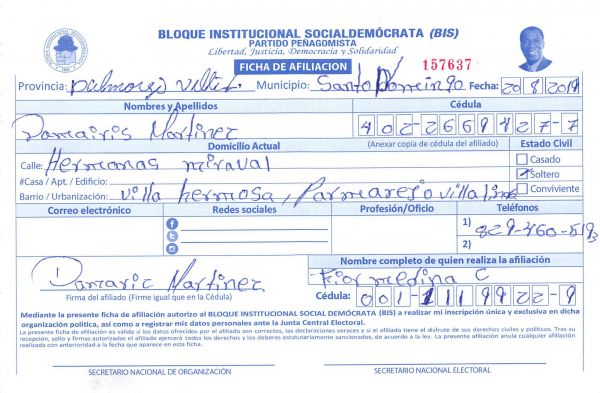 BLOQUE INSTITUCIONAL SOCIALDEMÓCRATA (BIS)
PARTIDO PEÑAGOMISTA
Libertad, Justicia, Democracia y Solidaridad
FICHA DE AFILIACION 157637
Provincia: Municipio: Santo Domingo Fecha: 20 8 2019
Nombres y Apellidos Cédula
Damairis Martinez 402-2669427-7
Domicilio Actual (Anexar copia de cédula del afiliado) Estado Civil
Calle: Hermanas miraval Casado
#Casa / Apt. / Edificio: Soltero
Barrio / Urbanización: villa hermosa, Conviviente
Correo electrónico Redes sociales Profesión/Oficio Teléfonos
1) 829-460-5193
2)
Nombre completo de quien realiza la afiliación
Damaris Martinez Flor medina C
Firma del afiliado (Firme igual que en la Cédula) Cédula: 001-1119922-9
Mediante la presente ficha de afiliación autorizo al BLOQUE INSTITUCIONAL SOCIAL DEMÓCRATA (BIS) a realizar mi inscripción única y exclusiva en dicha
organización política, así como a registrar mis datos personales ante la Junta Central Electoral.
La presente ficha de afiliación es válida si los datos ofrecidos por el afiliado son correctos, las declaraciones veraces y si el afiliado tiene el disfrute de sus derechos civiles y políticos. Tras su
recepción, sello y firmas autorizadas el afiliado ejercerá todos los derechos y los deberes estatutariamente sancionados, de acuerdo a la ley. La presente afiliación anula cualquier afiliación
realizada con anterioridad a la fecha que aparece en esta ficha.
SECRETARIO NACIONAL DE ORGANIZACIÓN SECRETARIO NACIONAL ELECTORAL